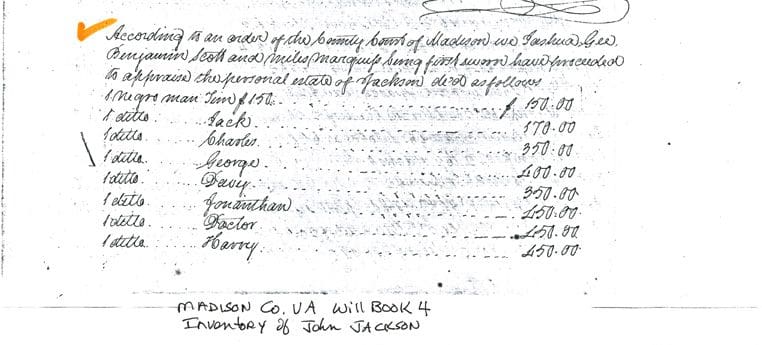 According to an order of the County Court of Madison we Joshua Gee
Benjamin Scott and miles marquess being first sworn have proceeded
to appraise the personal estate of Jackson decd as follows
1 negro man Tim $150 $ 150.00
1 ditto Jack 170.00
1 ditto Charles 350.00
1 ditto George 400.00
1 ditto Davy 350.00
1 ditto Jonainthan 450.00
1 ditto Doctor 450.00
1 ditto Harry 450.00
MADISON Co. VA Will BOOK 4
INVENTORY of John JACKSON